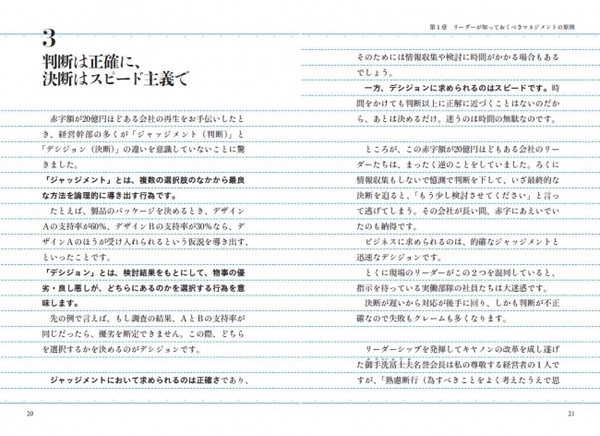 3
判断は正確に、
決断はスピード主義で
赤字額が20億円ほどある会社の再生をお手伝いしたと
き、経営幹部の多くが「ジャッジメント（判断）」と
「デシジョン（決断）」の違いを意識していないことに驚
きました。
「ジャッジメント」とは、複数の選択肢のなかから最良
な方法を論理的に導き出す行為です。
たとえば、製品のパッケージを決めるとき、デザイン
Ａの支持率が60％、デザインＢの支持率が30％なら、デ
ザインＡのほうが受け入れられるという仮説を導き出す、
といったことです。
「デシジョン」とは、検討結果をもとにして、物事の優
劣・良し悪しが、どちらにあるのかを選択する行為を意
味します。
先の例で言えば、もし調査の結果、ＡとＢの支持率が
同じだったら、優劣を断定できません。この際、どちら
を選択するかを決めるのがデシジョンです。
ジャッジメントにおいて求められるのは正確さであり、
20
第１章 リーダーが知っておくべきマネジメントの原則
そのためには情報収集や検討に時間がかかる場合もある
でしょう。
一方、デシジョンに求められるのはスピードです。時
間をかけても判断以上に正解に近づくことはないのだか
ら、あとは決めるだけ。迷うのは時間の無駄なのです。
ところが、この赤字額が20億円ほどもある会社のリー
ダーたちは、まったく逆のことをしていました。ろくに
情報収集もしないで憶測で判断を下して、いざ最終的な
決断を迫ると、「もう少し検討させてください」と言っ
て逃げてしまう。その会社が長い間、赤字にあえいでい
たのも納得です。
ビジネスに求められるのは、的確なジャッジメントと
迅速なデシジョンです。
とくに現場のリーダーがこの２つを混同していると、
指示を待っている実働部隊の社員たちは大迷惑です。
決断が遅いから対応が後手に回り、しかも判断が不正
確なので失敗もクレームも多くなります。
リーダーシップを発揮してキヤノンの改革を成し遂げ
た御手洗冨士夫名誉会長は私の尊敬する経営者の１人で
すが、「熟慮断行（為すべきことをよく考えたうえで思
21